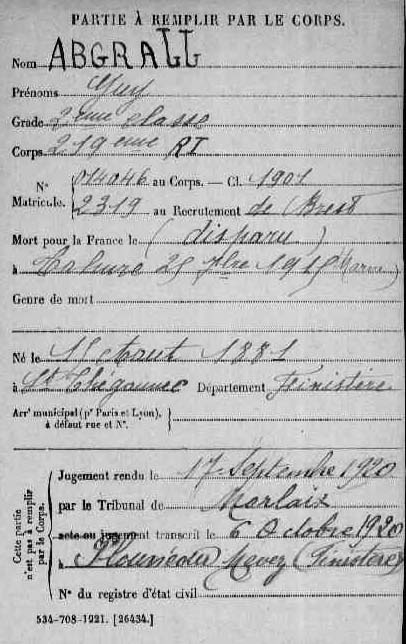 PARTIE À REMPLIR PAR LE CORPS.
Nom ABGRALL
Prénoms Guy
Grade 2ème classe
Corps 219ème RI
N° 014046 au Corps. — Cl. 1901
Matricule. 2319 au Recrutement de Brest
Mort pour la France le (disparu)
à Tahure 25 7bre 1915 (Marne)
Genre de mort
Né le 15 Aout 1881
à St Thégonnec Département Finistère
Arrt municipal (pr Paris et Lyon),
à défaut rue et N°.
Cette partie
n'est pas à remplir
par le Corps.
Jugement rendu le 17 Septembre 1920
par le Tribunal de Morlaix
acte ou jugement transcrit le 6 Octobre 1920
à Plounéour Menez (Finistère)
N° du registre d'état civil
534-708-1921. [26434.]